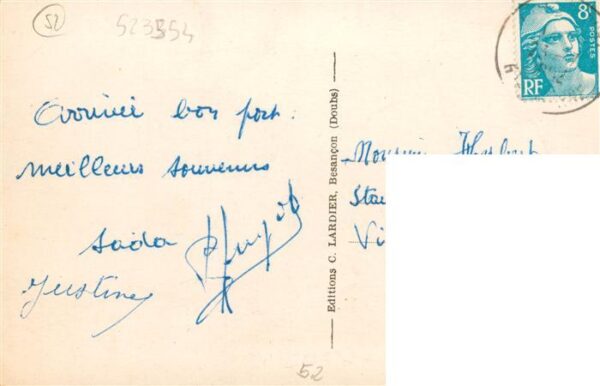 52
523554
8F
POSTES
RF
Arrivée bon port.
meilleurs souvenirs
Sada
Justine
Editions C. LARDIER, Besançon (Doubs)
Monsieur
Sta
Vi
52